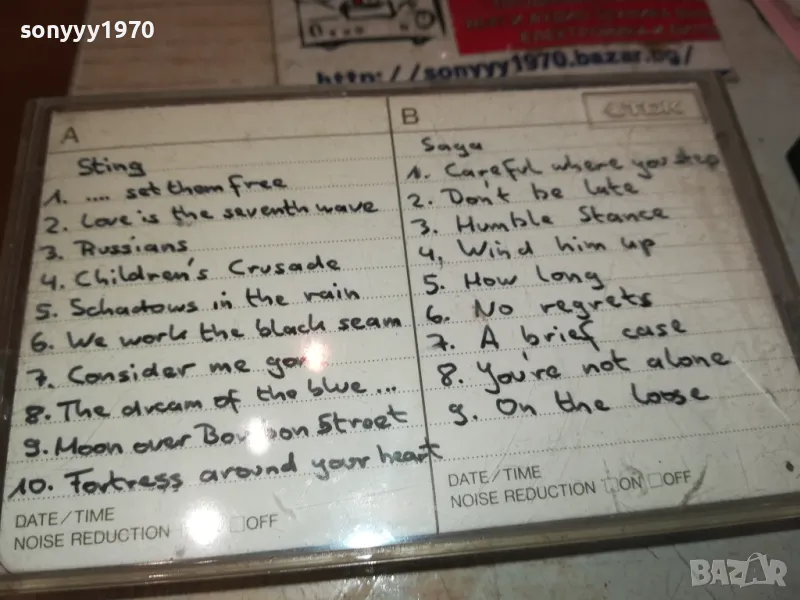 sonyyy1970
http://sonyyy1970.bazar.bg/
A
Sting
1. .... set them free
2. Love is the seventh wave
3. Russians
4. Children's Crusade
5. Schadows in the rain
6. We work the black seam
7. Consider me
8. The dream of the blue ...
9. Moon over Street
10. Fortress around your heart
DATE/TIME
NOISE REDUCTION OFF
B
TDK
Saga
1. Careful where you step
2. Don't be late
3. Humble Stance
4. Wind him up
5. How long
6. No regrets
7. A brief case
8. You're not alone
9. On the loose
DATE/TIME
NOISE REDUCTION ON OFF
BAZAR